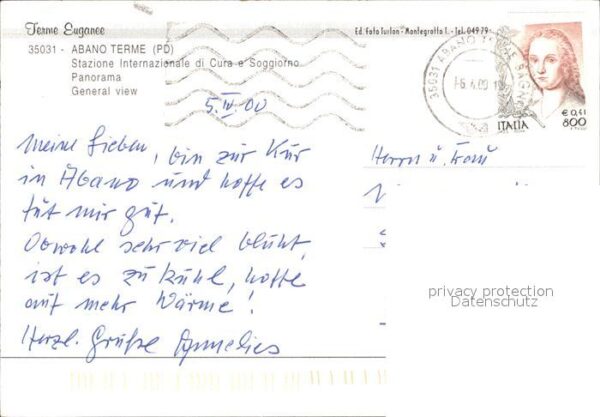 Terme Euganee
35031 - ABANO TERME (PD)
Stazione Internazionale di Cura e Soggiorno
Panorama
General view
Ed. Foto Turlon - Montegrotto T. - Tel. 049 79
35031 ABANO
-6.4.00
€ 0,41
800
ITALIA
5.IV.00
Meine Lieben, bin zur Kur
in Abano und hoffe es
tut mir gut.
Obwohl sehr viel blüht,
ist es zu kühl, hoffe
auf mehr Wärme!
Herzl. Grüße Annelies
Herrn u. Frau
privacy protection
Datenschutz